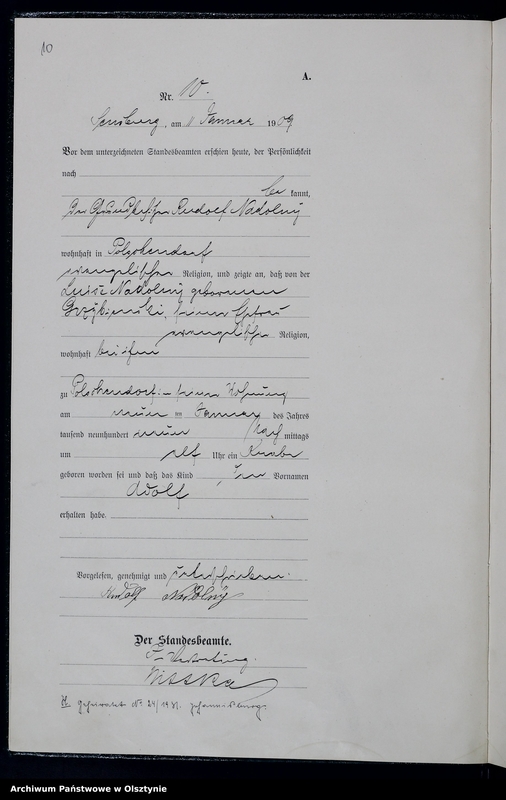 10
A.
Nr. 10.
Sensburg, am 11 Januar 1909
Vor dem unterzeichneten Standesbeamten erschien heute, der Persönlichkeit
nach
be kannt,
der Grundbesitzer Rudolf Nadolny
wohnhaft in Polschendorf
evangelischer Religion, und zeigte an, daß von der
Luise Nadolny geborenen
seiner Ehefrau
evangelischer Religion,
wohnhaft bei ihm
zu Polschendorf in seiner Wohnung
am neun ten Januar des Jahres
tausend neunhundert neun Nach mittags
um elf Uhr ein Knabe
geboren worden sei und daß das Kind den Vornamen
Adolf
erhalten habe.
Vorgelesen, genehmigt und unterschrieben.
Rudolf Nadolny
Der Standesbeamte.
In Vertretung.
H. Geheiratet Nr. 24/1931. Johannisburg.
Archiwum Państwowe w Olsztynie